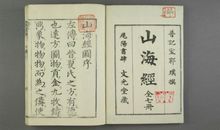 晉記室郭璞撰
山海經 全七冊
尾陽書肆 文光堂藏
山海經圖序
左傳曰昔夏氏之方有德
也遠方圖物貢金九牧鑄
象物物而為之備使